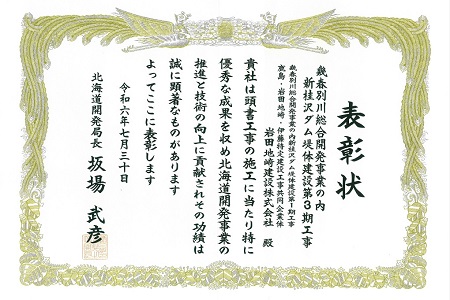 表彰状
幾春別川総合開発事業の内
新桂沢ダム堤体建設第3期工事
幾春別川総合開発事業の内新桂沢ダム堤体建設第1期工事
鹿島・岩田地崎・伊藤特定建設工事共同企業体
岩田地崎建設株式会社 殿
貴社は頭書工事の施工に当たり特に
優秀な成果を収め北海道開発事業の
推進と技術の向上に貢献されその功績は
誠に顕著なものがあります
よってここに表彰します
令和六年七月三十日
北海道開発局長 坂場 武彦